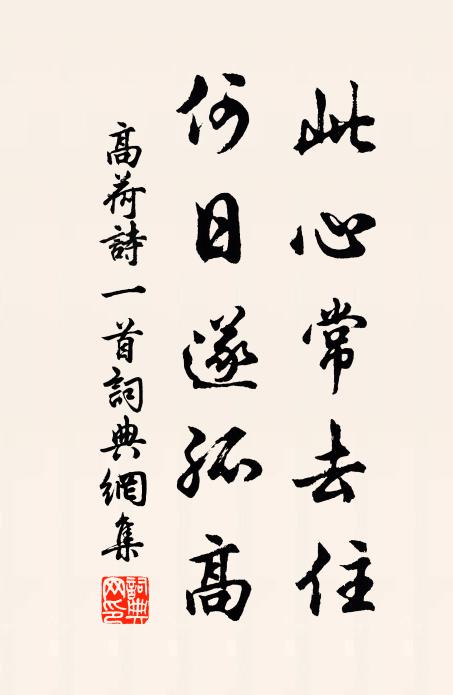 此心常去住
何日遂孤高
高荷詩一首詞典網集
詞典網印